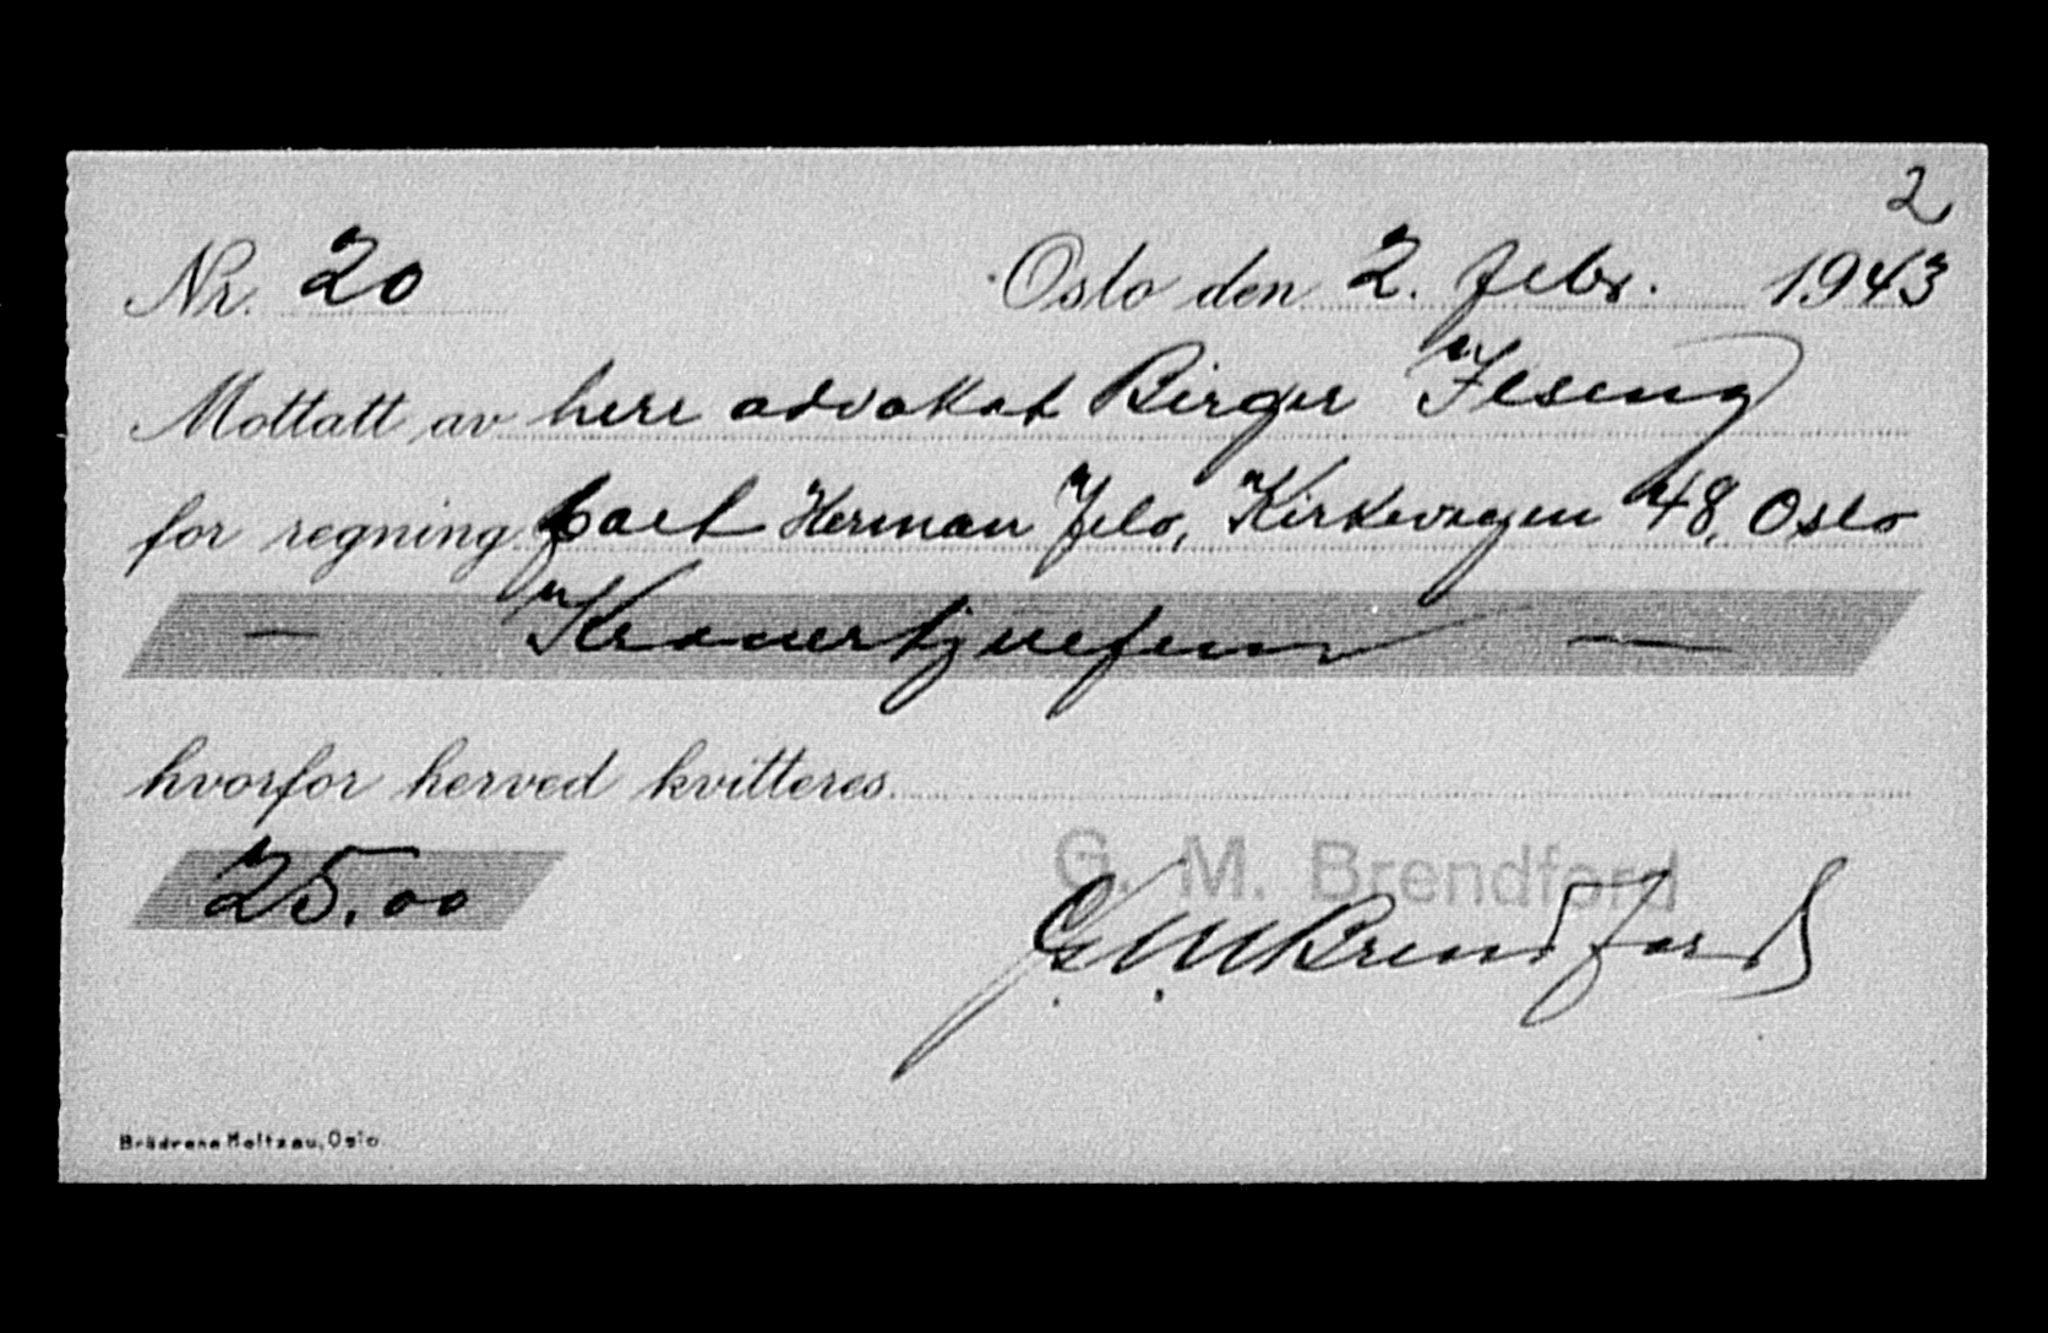 2
Nr. 20 Oslo den 2. febr. 1943
Mottatt av herr advokat Birger Ilseng
for regning Carl Herman Jelo, Kirkevegen 48, Oslo
— Kronertjuefem —
hvorfor herved kvitteres
25.00
G. M. Brendford
G. M. Brendford
Brödrene Moltzau, Oslo